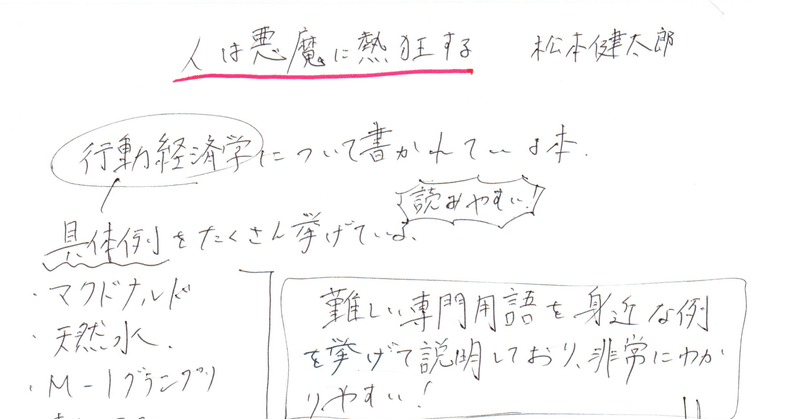 人は悪魔に熱狂する 松本健太郎
行動経済学について書かれている本.
読みやすい!
具体例をたくさん挙げている、
・マクドナルド
・天然水.
・M-1グランプリ
難しい専門用語を身近な例
を挙げて説明しており、非常にわか
りやすい!